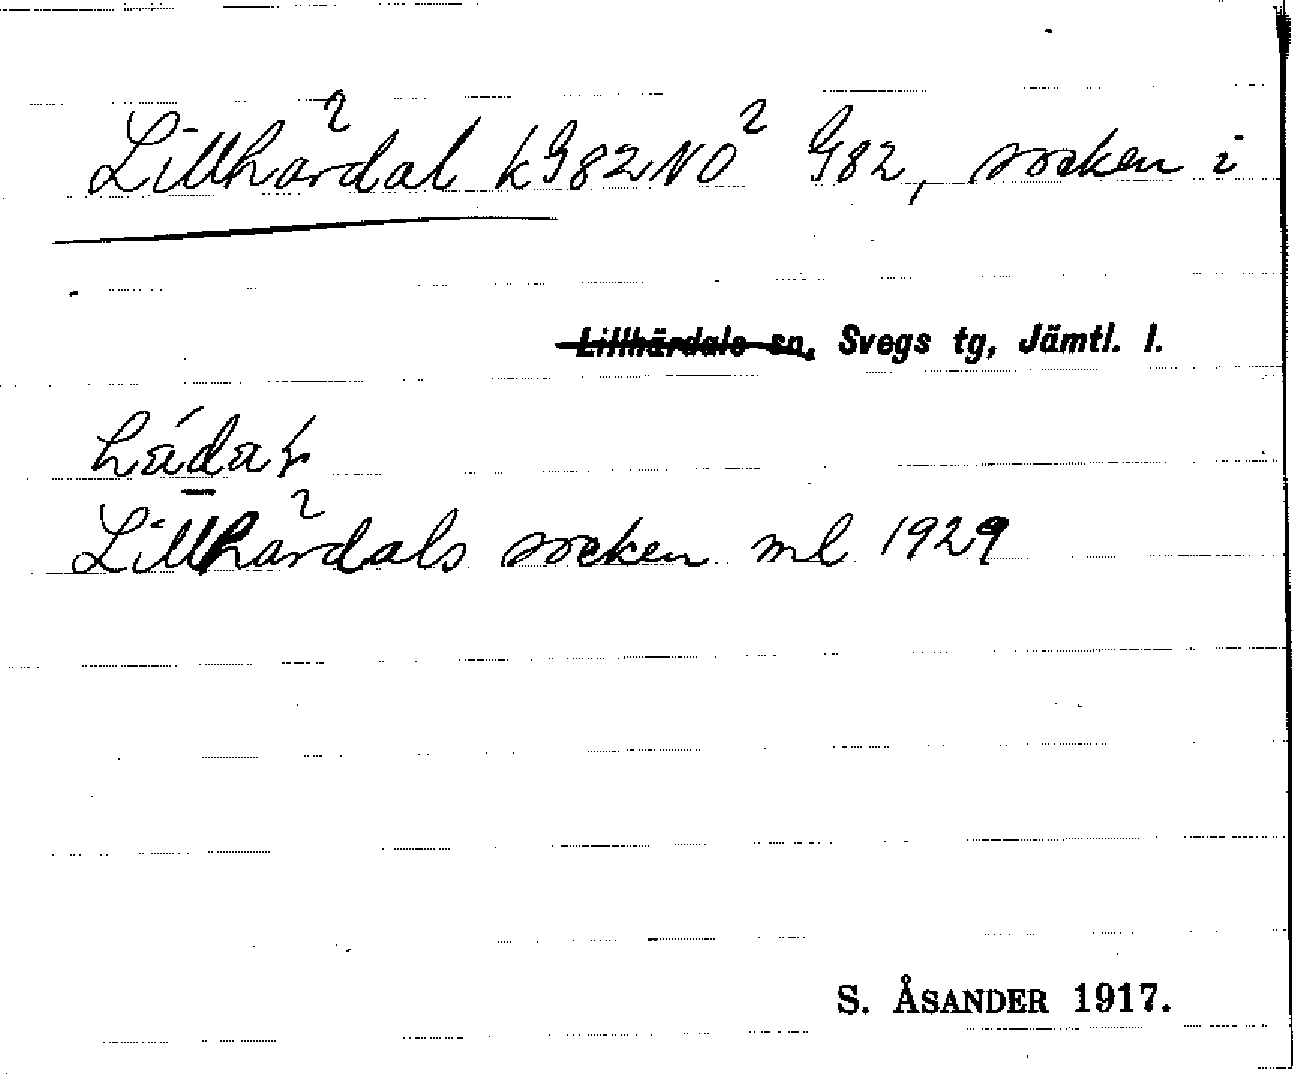 Lillhärdal k G82NO² G82, socken i
Lillhärdals sn, Svegs tg, Jämtl. l.
Lillhärdals socken ml 1929
S. ÅSANDER 1917.